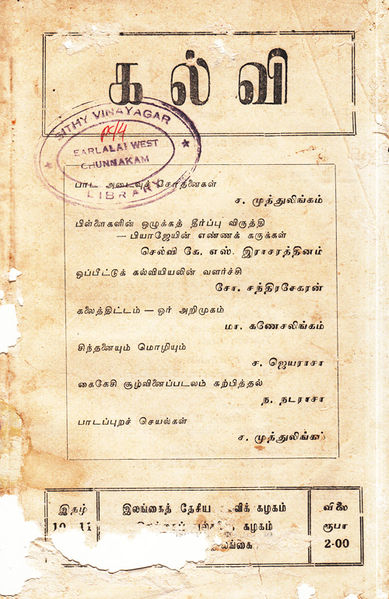 கல்வி
SITHY VINAYAGAR
EARLALAI WEST
CHUNNAKAM
LIBRARY
பாட அடைவுச் சோதனைகள்
ச. முத்துலிங்கம்
பிள்ளைகளின் ஒழுக்கத் தீர்ப்பு விருத்தி
— பியாஜேயின் எண்ணக் கருக்கள்
செல்வி கே. எஸ். இராசரத்தினம்
ஒப்பீட்டுக் கல்வியியலின் வளர்ச்சி
சோ. சந்திரசேகரன்
கலைத்திட்டம் — ஓர் அறிமுகம்
மா. கணேசலிங்கம்
சிந்தனையும் மொழியும்
ச. ஜெயராசா
கைகேசி சூழ்வினைப்படலம் கற்பித்தல்
ந. நடராசா
பாடப்புறச் செயல்கள்
ச. முத்துலிங்கம்
இதழ்
இலங்கைத் தேசிய கழகம்
கழகம்
இலங்கை
விலை
ரூபா
2-00